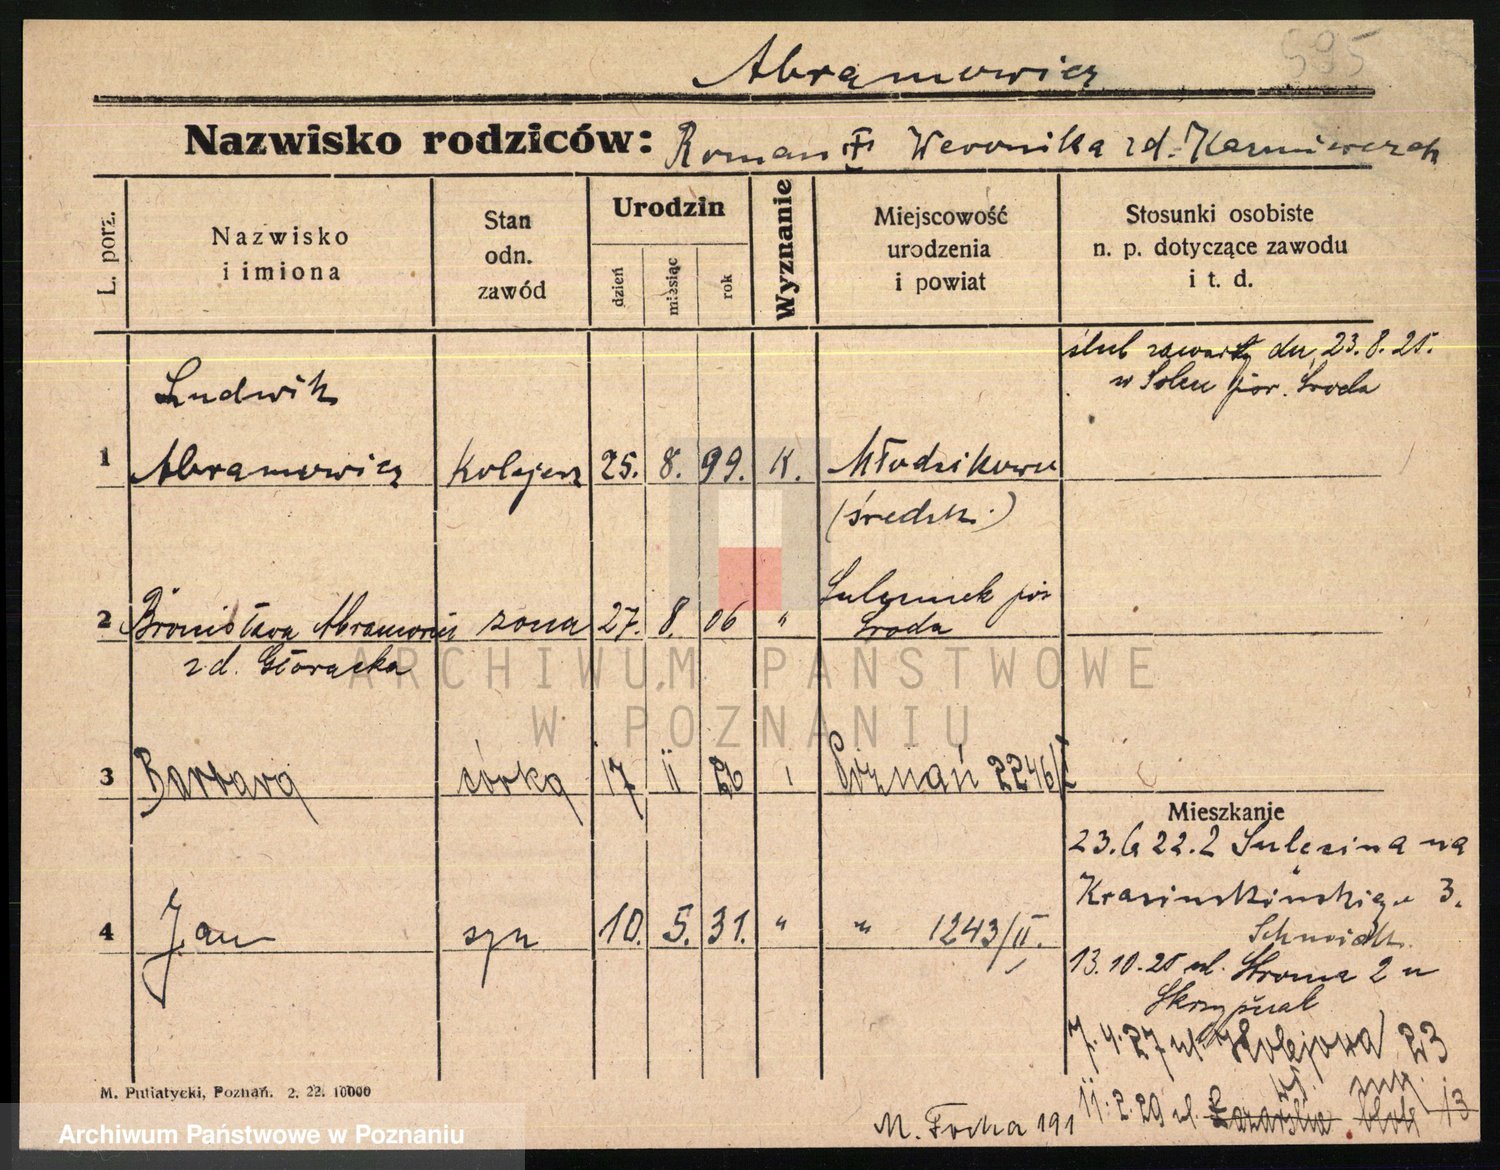 595
Abramowicz
Nazwisko rodziców: Roman i Weronika z d. Kaźmierczak
L. porz.
Nazwisko
i imiona
Stan
odn.
zawód
Urodzin
dzień
miesiąc
rok
Wyznanie
Miejscowość
urodzenia
i powiat
Stosunki osobiste
n. p. dotyczące zawodu
i t. d.
ślub zawarty dn. 23.8.25.
w Solcu por. Środa
Ludwik
1 Abramowicz Kolejarz 25. 8. 99. K. Młodzikowo
(średzki)
2 Bronisława Abramowicz żona 27. 8. 06 " Sulęcinek pow
Środa
z d. Głóracka
3 Barbara córka 17 11 26 Poznań 2246/I
4 Jan syn 10. 5. 31. " " 1243/II.
Mieszkanie
23. 6 22. z Sulęcina na
3.
Schmidt.
13.10.25 ul. Stroma 2 u
Skrzypczak
7.4.27 ul. Kolejowa 23
11.2.29 ul. Łazarska 13
M. Focha 191
M. Putiatycki, Poznań. 2. 22. 10000
ARCHIWUM PAŃSTWOWE
W POZNANIU
Archiwum Państwowe w Poznaniu